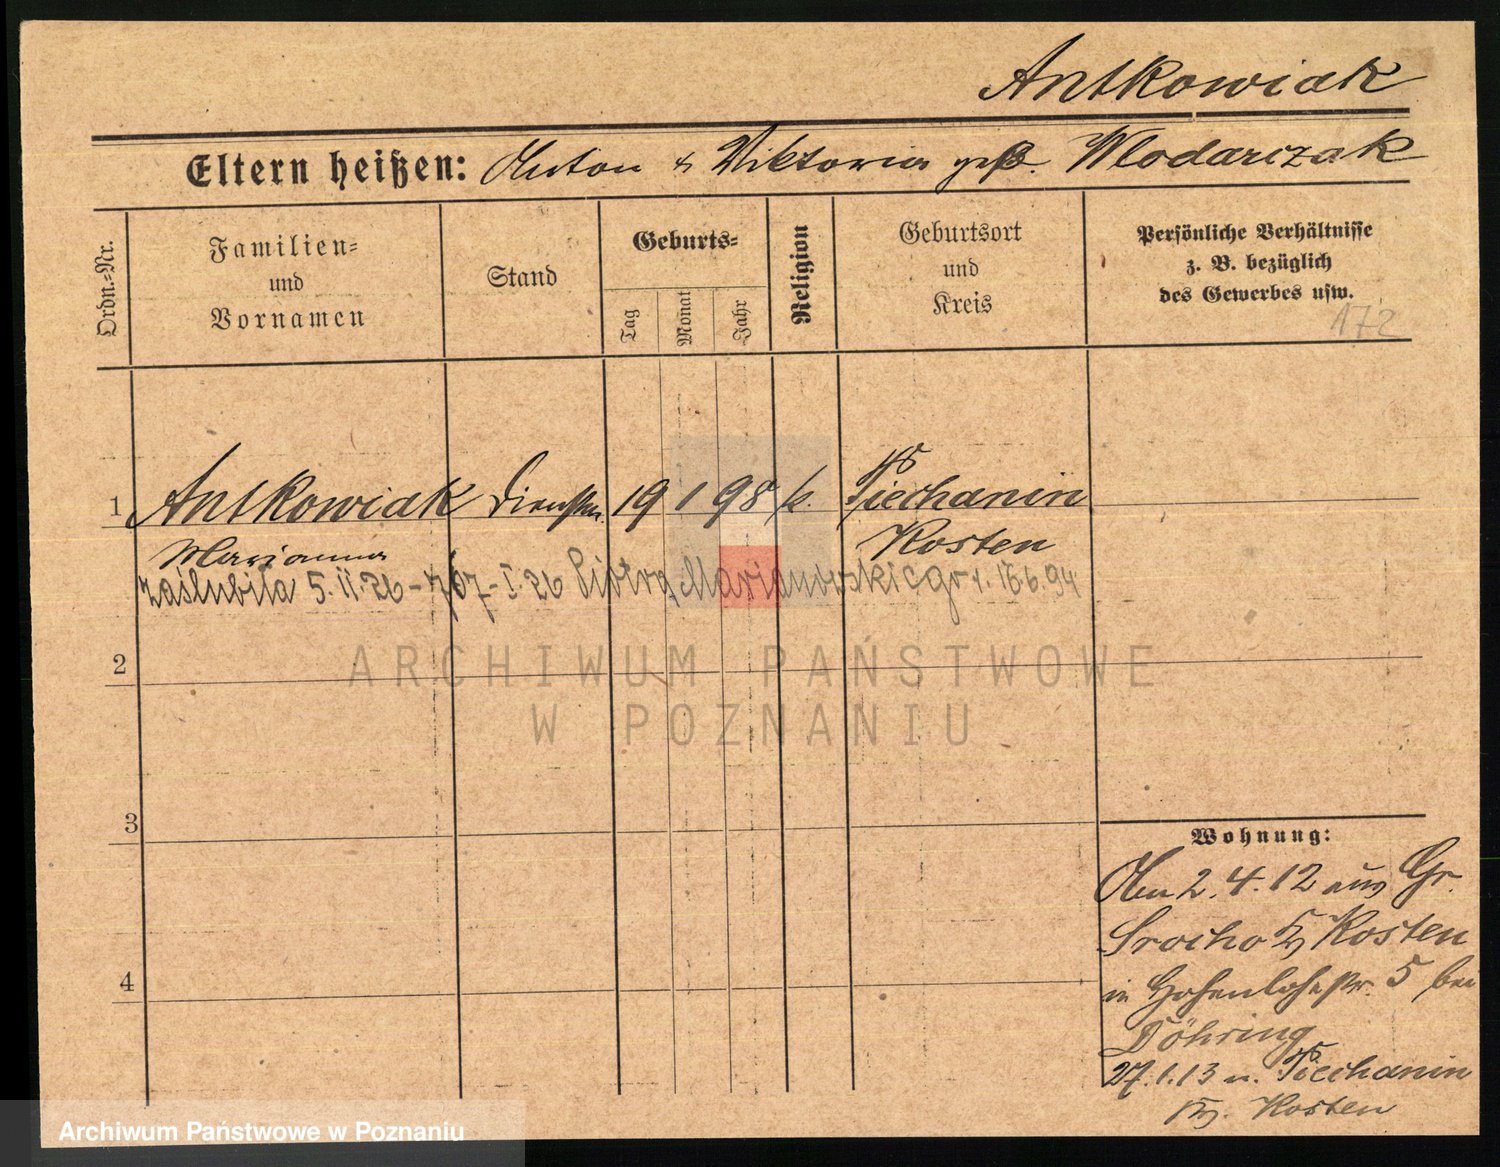 Antkowiak
Eltern heißen: Anton & Viktoria geb. Wlodarczak
Ordn.=Nr.
Familien=
und
Vornamen
Stand
Geburts=
Tag
Monat
Jahr
Religion
Geburtsort
und
Kreis
Persönliche Verhältnisse
z. B. bezüglich
des Gewerbes usw.
172
1 Antkowiak Dienstm. 19 1 98 k. Piechanin
Marianna Kosten
zaślubiła 5.II.26 - I.26 Piotra Marianowskiego 94
2
ARCHIWUM PAŃSTWOWE
W POZNANIU
3
Wohnung:
Am 2.4.12 aus Gr.
Srocko Kr Kosten
in Hohenlohestr. 5 bei
Döhring
27.1.13 n. Piechanin
Kr. Kosten
4
Archiwum Państwowe w Poznaniu